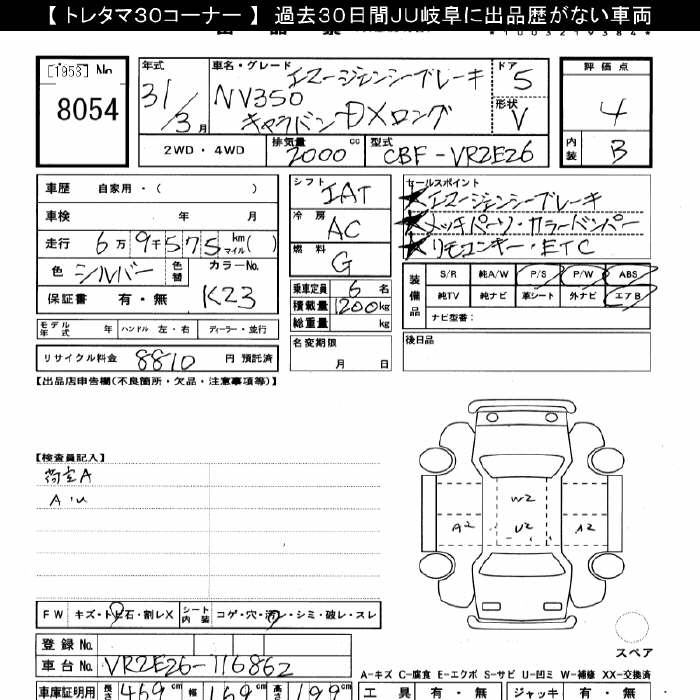 【 トレタマ30コーナー 】 過去30日間JU岐阜に出品歴がない車両
[1953] No
8054
年式
31/3月
車名・グレード
エマージェンシーブレーキ
NV350
キャラバン DXロング
ドア
5
形状
V
評価点
4
内装
B
2WD・4WD
排気量
2000cc
型式
CBF-VR2E26
車歴 自家用・( )
車検 年 月
走行 6万9千575km マイル( )
色 シルバー 色替
カラーNo.
K23
保証書 有・無
モデル年式 年 ハンドル 左・右 ディーラー・並行
リサイクル料金 8810 円 預託済
シフト
IAT
冷房
AC
燃料
G
乗車定員 6名
積載量 1200kg
総重量 kg
名変期限
月 日
セールスポイント
★エマージェンシーブレーキ
★メッキパーツ・カラーバンパー
★リモコンキー・ETC
装備品
S/R 純A/W P/S P/W ABS
純TV 純ナビ 革シート 外ナビ エアB
ナビ型番:
後日品
【出品店申告欄(不良箇所・欠品・注意事項等)】
【検査員記入】
荷室A
A・U
W2
A2 U2 A2
FW キズ・トビ石・割レX シート内装 コゲ・穴・汚レ・シミ・破レ・スレ
登録 No.
車台 No. VR2E26-116862
スペア
A-キズ C-腐食 E-エクボ S-サビ U-凹ミ W-補修 XX-交換済
車庫証明用 長さ 469cm 幅 169cm 高さ 199cm
工具 有・無 ジャッキ 有・無